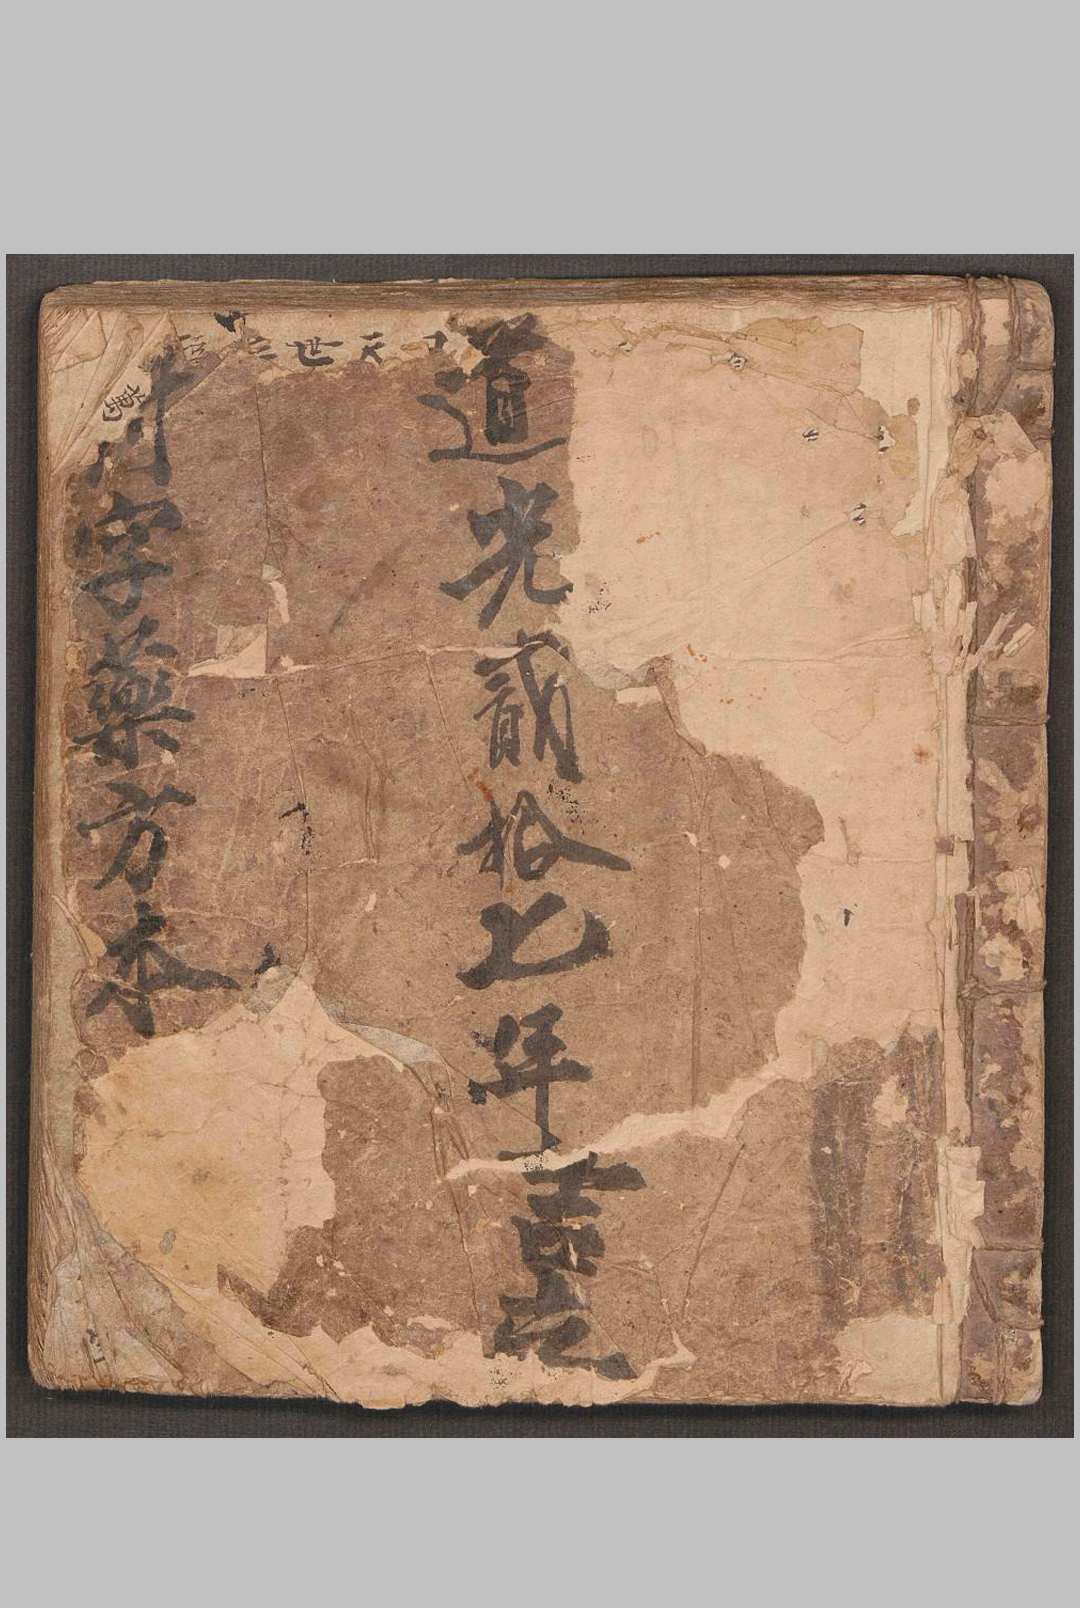 道光貳拾七年吉立
字藥方本
天世三
萬